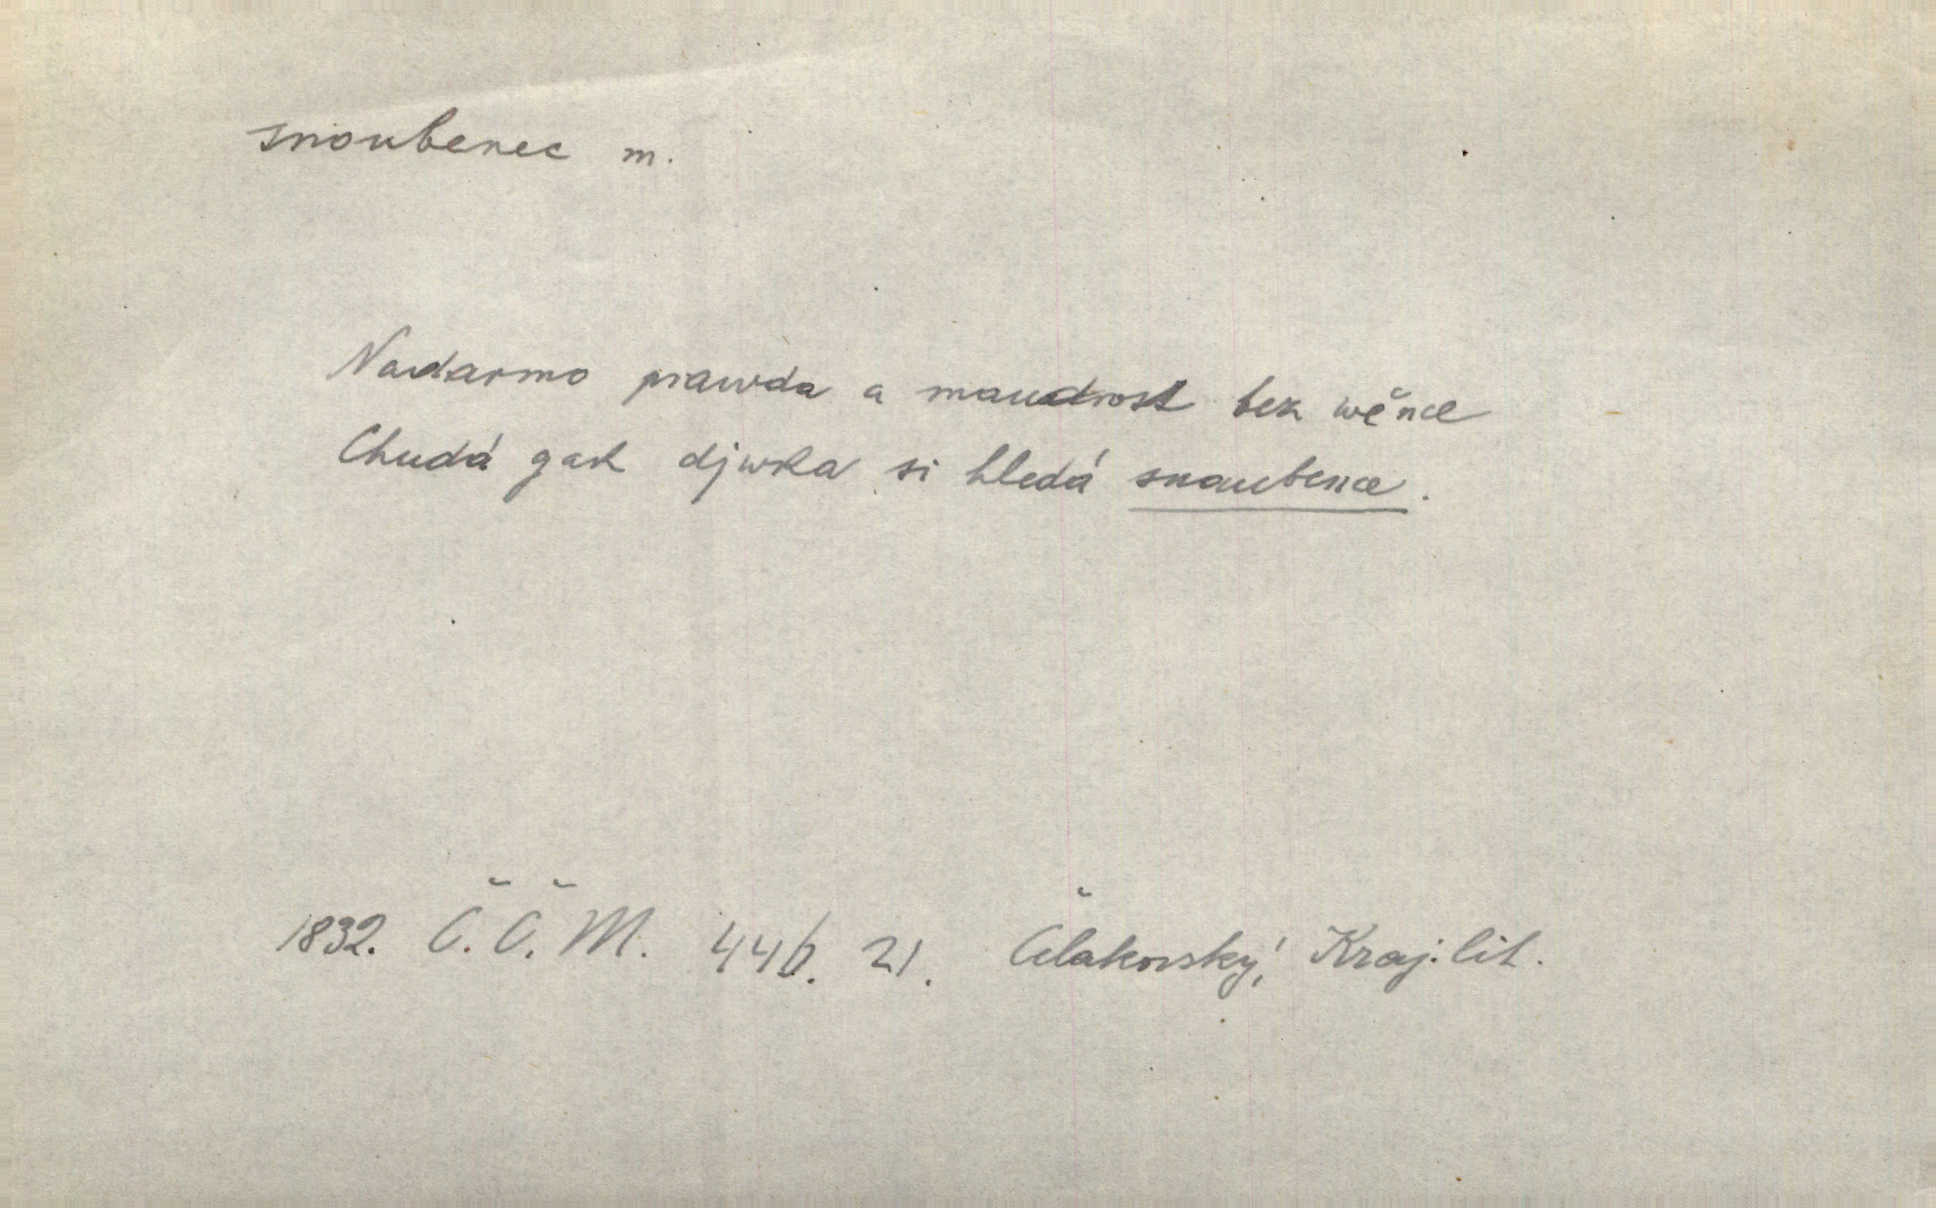 snoubenec m.
Nadarmo prawda a maudrost bez wěnce
Chudá gak djwka si hledá snaubence.
1832. Č. Č. M. 446. 21. Čelakovský, Kraj. lit.